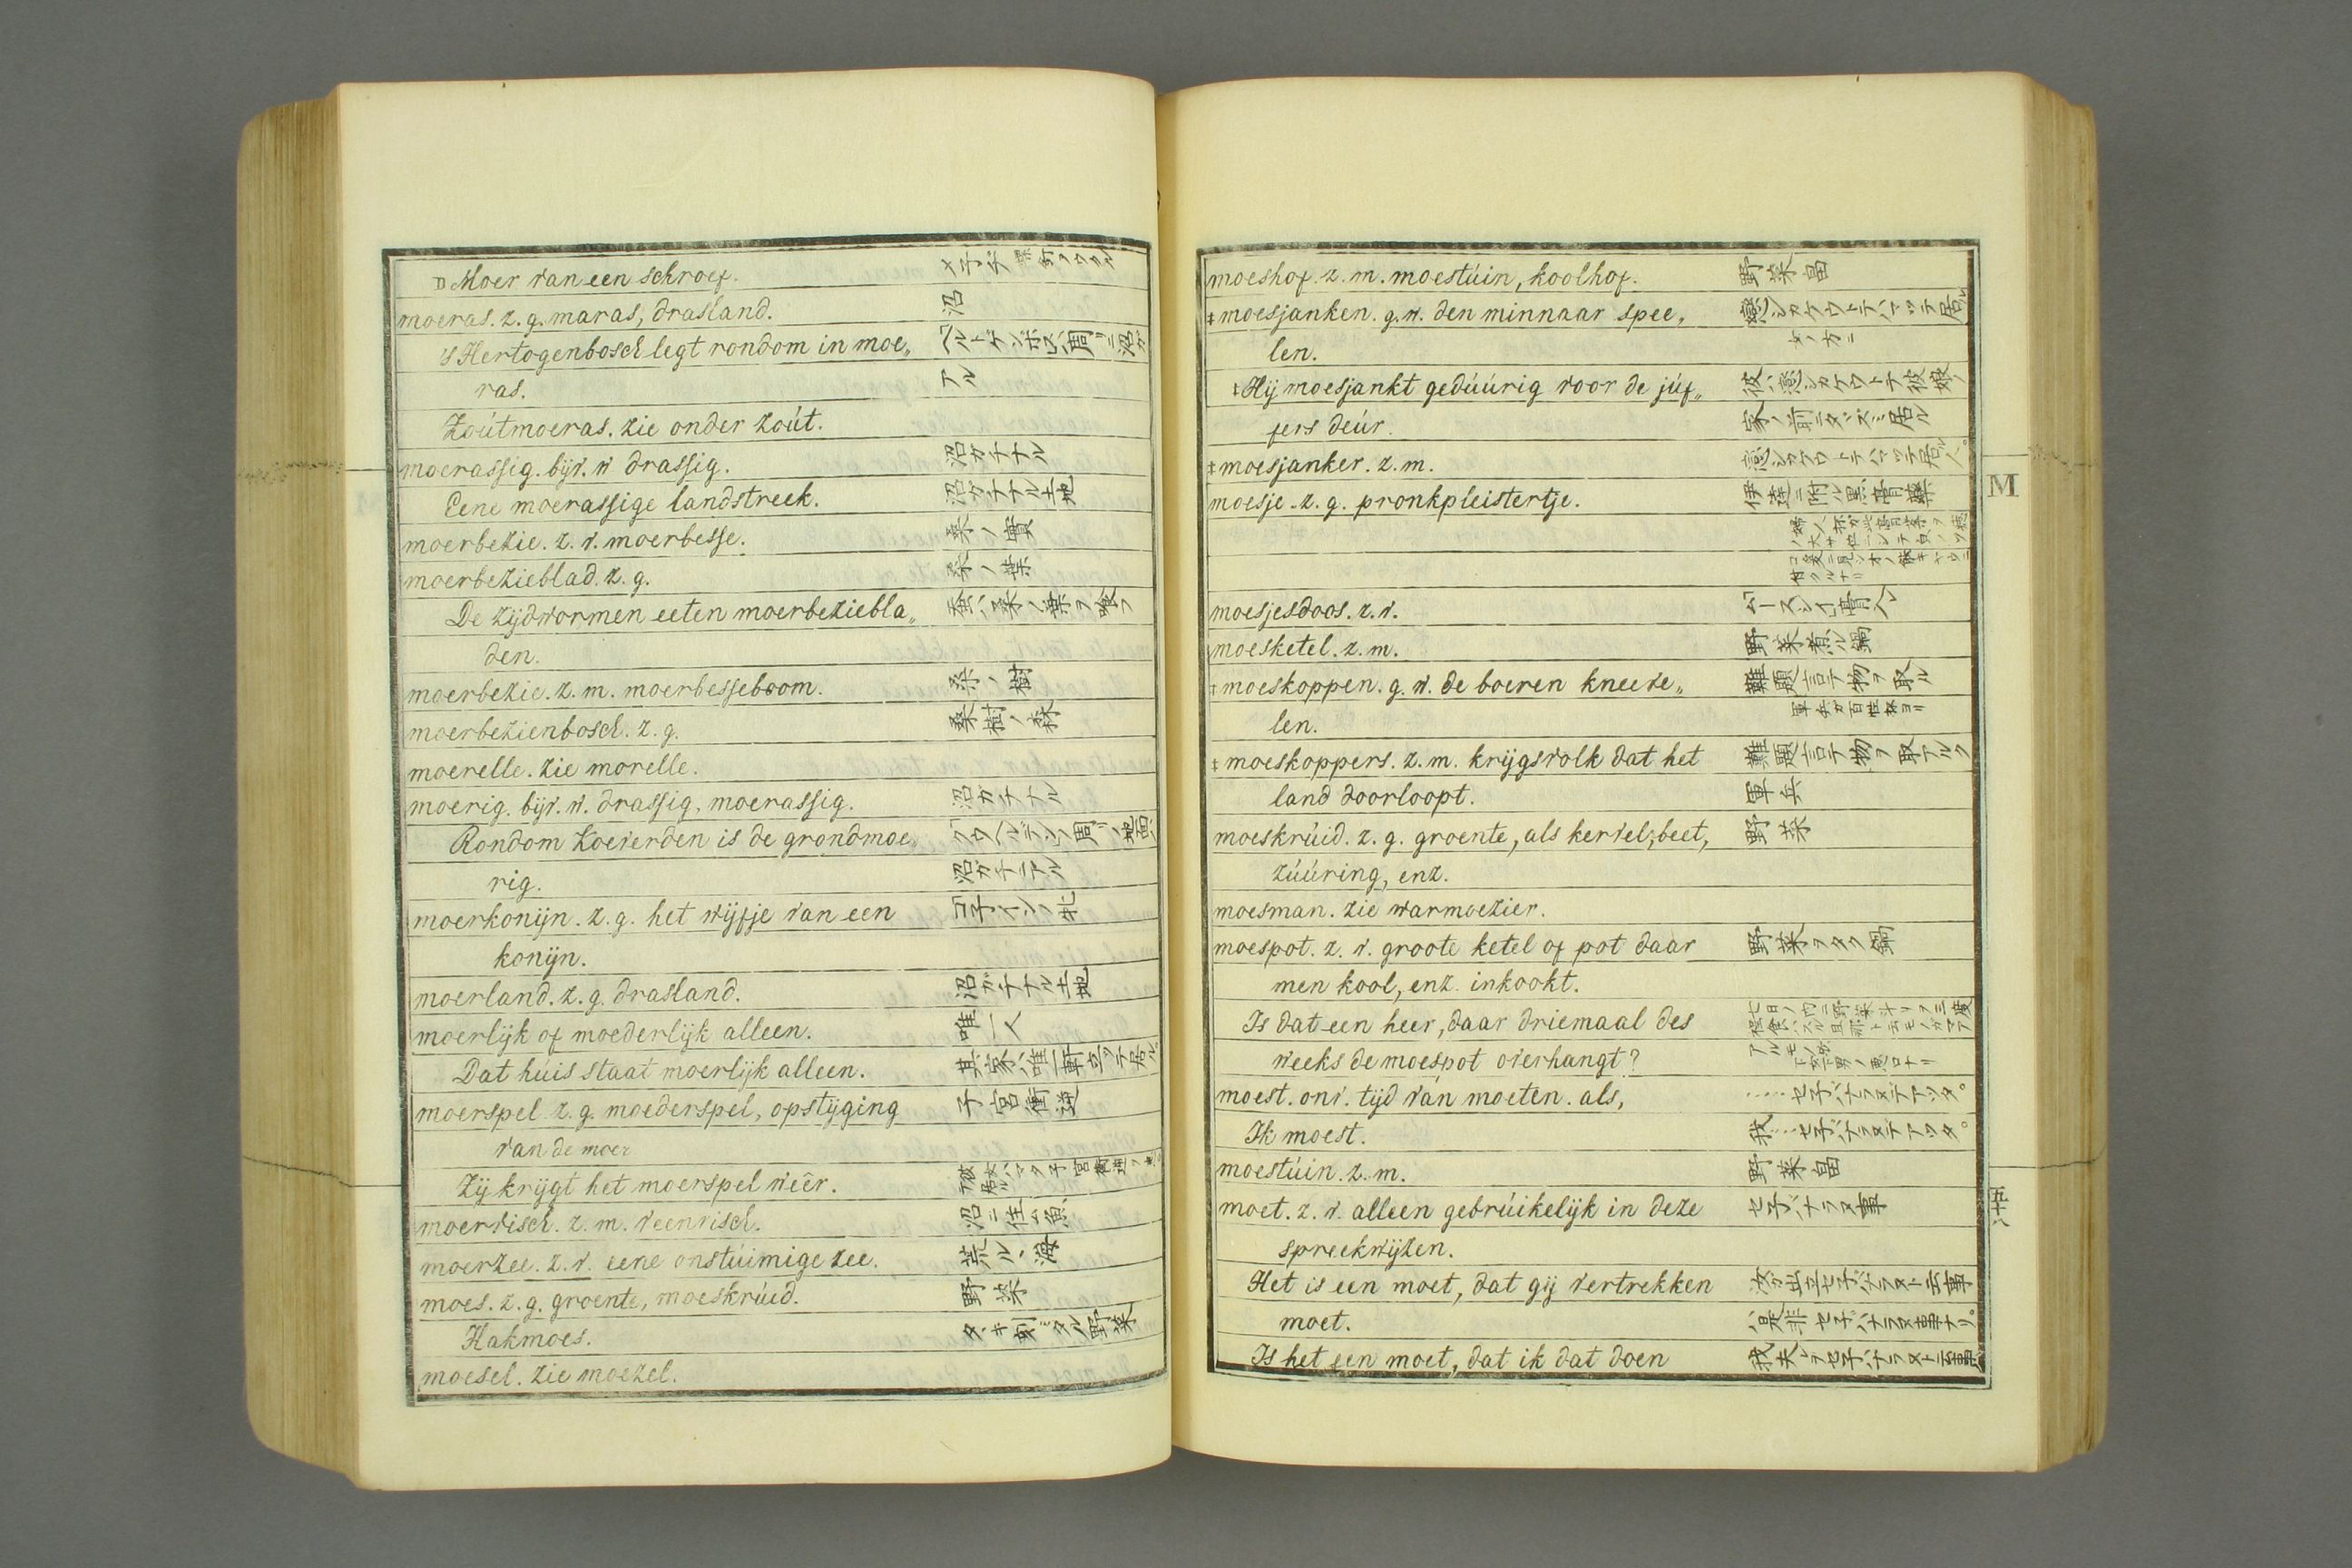 Moer van een schroef. メ子ヂ
moeras. z. g. maras, drasland. 沼
'sHertogenbosch legt rondom in moe„ ヘルトゲンボスハ周リニ沼ガ
ras. アル
Zoútmoeras. zie onder zoút.
moerassig. bijv. w drassig. 沼ガチナル
Eene moerassige landstreek. 沼ガチナル土地
moerbezie. z. v. moerbesse. 桑ノ實
moerbezieblad. z. g. 桑ノ葉
De zijdwormen eeten moerbeziebla„ 蚕ハ桑ノ葉ヲ喰フ
den.
moerbezie. z. m. moerbesseboom. 桑ノ樹
moerbezienbosch. z. g. 桑樹ノ森
moerelle. zie morelle.
moerig. bijv. w. drassig, moerassig. 沼ガチナル
Rondom Koeverden is de grond moe„ 周リノ地面
rig. 沼ガチニアル
moerkonijn. z. g. het wijfje van een コ子インノ牝
konijn.
moerland. z. g. drasland. 沼ガチナル土地
moerlijk of moederlijk alleen. 唯一人
Dat húis staat moerlijk alleen. 其家ハ唯一軒立ツテ居ル
moerspel z. g. moederspel, opstijging 子宮衝逆
van de moer
Zij krijgt het moerspel wêêr.
moervisch. z. m. veenvisch. 沼ニ住ム魚
moerzee. z. v. eene onstúimige zee. 荒ルヽ海
moes. z. g. groente, moeskrúid. 野菜
Hakmoes. タヽキ刻ミタル野菜
moesel. zie moezel.
moeshof. z. m. moestúin, koolhof. 野菜畠
‡moesjanken. g. w. den minnaar spee„
len.
‡Hij moesjankt gedúúrig voor de júf„
fers deúr. 家ノ前ニタヽズミ居ル
‡moesjanker. z. m.
moesje. z. g. pronkpleistertje. 伊達ニ附ル黒膏藥
moesjesdoos. z. v.
moesketel. z. m. 野菜煮ル鍋
‡moeskoppen. g. w. de boeren kneeve„ 難題言テ物ヲ取ル
len. 軍兵ガ百姓抔ヨリ
‡moeskoppers. z. m. krijgsvolk dat het 難題言テ物ヲ取アルク
land doorloopt. 軍兵
moeskrúid. z. g. groente, als kervel, beet, 野菜
zúúring, enz.
moesman. zie warmoezier.
moespot. z. v. groote ketel of pot daar 野菜ヲタク鍋
men kool, enz. inkookt.
Is dat een heer, daar driemaal des
weeks de moespot overhangt?
moest. onv. tijd van moeten. als, …セ子バナラヌデアツタ。
Ik moest. 我…セ子バナラヌデアツタ。
moestúin. z. m. 野菜畠
moet. z. v. alleen gebrúikelijk in deze セ子バナラヌ事
spreekwijzen.
Het is een moet, dat gij vertrekken 汝ガ出立セ子バナラヌト云事
moet. ハ是非セ子バナラヌ事ナリ。
Is het een moet, dat ik dat doen 我夫レヲセ子バナラヌト云事ハ
M